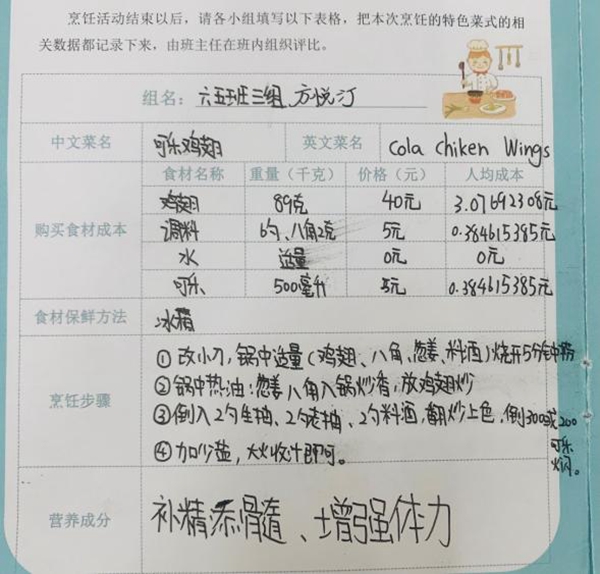 烹饪活动结束以后，请各小组填写以下表格，把本次烹饪的特色菜式的相
关数据都记录下来，由班主任在班内组织评比。
组名：六五班三组 方悦汀
中文菜名 可乐鸡翅 英文菜名 Cola Chiken Wings
食材名称 重量（千克） 价格（元） 人均成本
购买食材成本
鸡翅 89克 40元 3.07692308元
调料 6勺、八角2克 5元 0.384615385元
水 适量 0元 0元
可乐 500毫升 5元 0.384615385元
食材保鲜方法 冰箱
烹饪步骤
①改小刀，锅中适量（鸡翅、八角、葱姜、料酒）烧开5分钟中捞
②锅中热油：葱姜八角入锅炒香，放鸡翅炒
③倒入2勺生抽、2勺老抽、2勺料酒，翻炒上色，倒300或200
可乐
焖。
④加少盐，大火收汁即可。
营养成分 补精添骨髓、增强体力